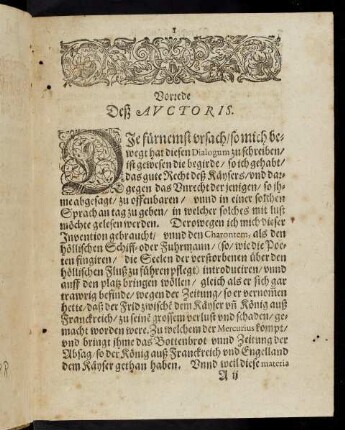 Vorrede
Deß AVCTORIS.
DJe fürnemst vrsach/ so mich be-
wegt hat diesen Dialogum zu schreiben/
ist gewesen die begirde/ so ich gehabt/
das gute Recht deß Käysers/ vnd dar-
gegen das Vnrecht der jenigen/ so jh-
me abgesagt/ zu offenbaren/ vnnd in einer solchen
Sprach an tag zu geben/ in welcher solches mit lust
möchte gelesen werden. Derowegen ich mich dieser
Invention gebraucht/ vnnd den Charontem, als den
höllischen Schiff- oder Fuhrmann/ (so/ wie die Poe-
ten fingiren/ die Seelen der verstorbenen über den
höllischen Fluß zu führen pflegt) introduciren/ vnnd
auff den platz bringen wöllen/ gleich als er sich gar
trawrig befinde/ wegen der Zeitung/ so er vernom̃en
hette/ daß der Frid zwischẽ dem Käyser vñ König auß
Franckreich/ zu seinẽ grossem verlust vnd schaden/ ge-
macht worden were. Zu welchem der Mercurius kompt/
vnd bringt jhme das Bottenbrot vnnd Zeitung der
Absag/ so der König auß Franckreich vnd Engelland
dem Käyser gethan haben. Vnnd weil diese materia
A ij